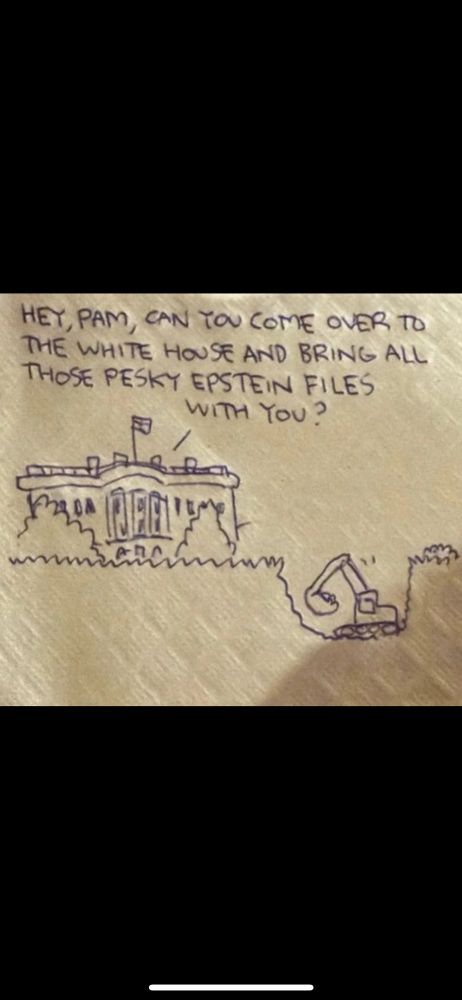 HEY, PAM, CAN YOU COME OVER TO
THE WHITE HOUSE AND BRING ALL
THOSE PESKY EPSTEIN FILES
WITH YOU?